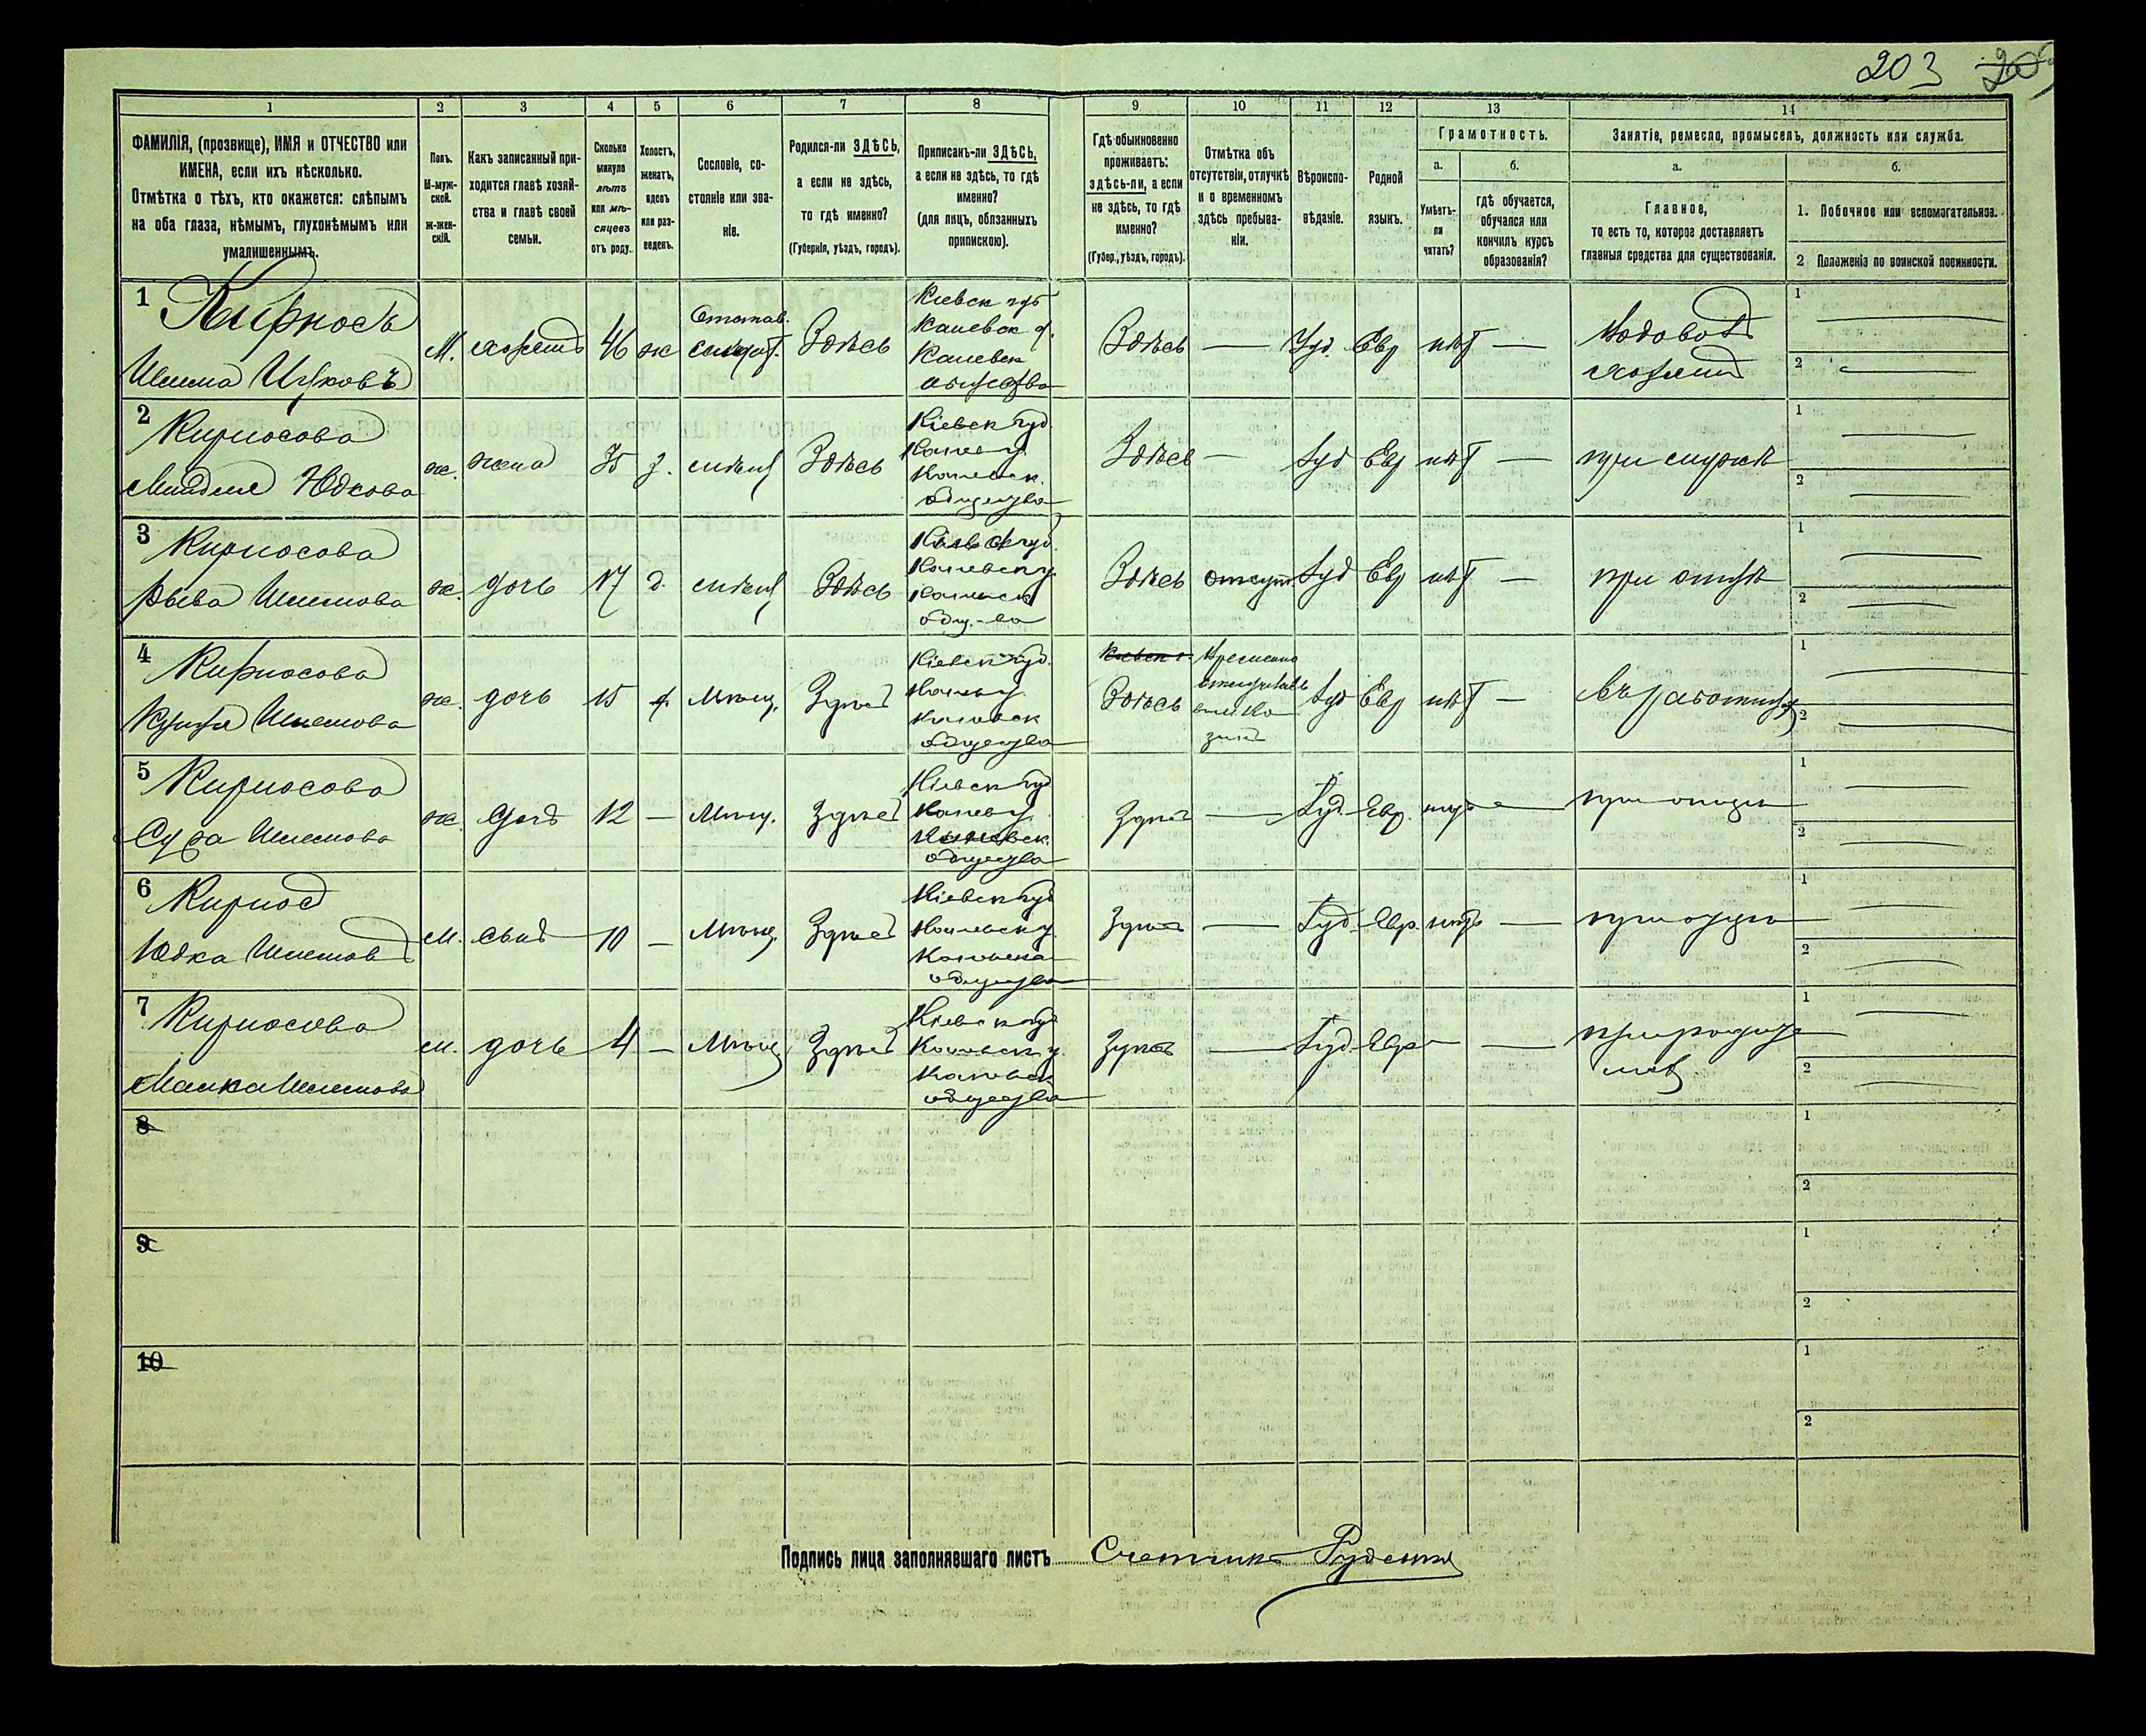 203
1
2
3
4
5
6
7
8
9
10
11
12
13
14
ФАМИЛІЯ, (прозвище), ИМЯ и ОТЧЕСТВО или
ИМЕНА, если ихъ нѣсколько.
Отмѣтка о тѣхъ, кто окажется: слѣпымъ
на оба глаза, нѣмымъ, глухонѣмымъ или
умалишеннымъ.
Полъ.
М-муж-
ской.
ж-жен-
скій.
Какъ записанный при-
ходится главѣ хозяй-
ства и главѣ своей
семьи.
Сколько
минуло
лѣтъ
или мѣ-
сяцевъ
отъ роду.
Холостъ,
женатъ,
вдовъ
или раз-
веденъ.
Сословіе, со-
стояніе или зва-
ніе.
Родился-ли ЗДѢСЬ,
а если не здѣсь,
то гдѣ именно?
(Губернія, уѣздъ, городъ).
Приписанъ-ли ЗДѢСЬ,
а если не здѣсь, то гдѣ
именно?
(для лицъ, обязанныхъ
припискою).
Гдѣ обыкновенно
проживаетъ:
здѣсь-ли, а если
не здѣсь, то гдѣ
именно?
(Губер., уѣздъ, городъ).
Отмѣтка объ
отсутствіи, отлучкѣ
и о временномъ
здѣсь пребыва-
ніи.
Вѣроиспо-
вѣданіе.
Родной
языкъ.
Грамотность.
а.
Умѣетъ-
ли
читать?
б.
гдѣ обучается,
обучался или
кончилъ курсъ
образованія?
Занятіе, ремесло, промыселъ, должность или служба.
а.
Главное,
то есть то, которое доставляетъ
главныя средства для существованія.
б.
1. Побочное или вспомогательное.
2 Положеніе по воинской повинности.
1
Кирносъ
Шлема Ицковъ
М. хозяинъ 46 ж Отстав. солдат. Здѣсь
Кіевск губ
Каневск у.
Каневск
общества
Здѣсь — Іуд. Евр нѣт —
Водовоз
хозяинъ
1
2
2
Кирносова
Миндля Юдкова
ж. жена 35 з. Здѣсь
Кіевск губ.
Канев у.
Каневск.
общества
Здѣсь — Іуд Евр нѣт — при мужѣ
1
2
3
Кирносова
Рыва Шлемова
ж. дочь 17 д. Здѣсь
Кіевск губ.
Каневск у.
Каневск
общ.-ва
Здѣсь отсут Іуд Евр нѣт — при отцѣ
1
2
4
Кирносова
Шлемова
ж. дочь 15 д. Мѣщ. Здѣсь
Кіевск губ.
Канев у.
Каневск
общества
Здѣсь Временно Іуд Евр нѣт —
1
2
5
Кирносова
Сура Шлемова
ж. дочь 12 — Мѣщ. Здѣсь
Кіевск губ
Канев у.
Каневск.
общества
Здѣсь — Іуд. Евр. нѣтъ — при отцѣ
1
2
6
Кирнос
Юдка Шлемовъ
М. сынъ 10 — Мѣщ. Здѣсь
Кіевск губ
Каневск у.
Каневска
общества
Здѣсь — Іуд. Евр. нѣтъ — при отцѣ
1
2
7
Кирносова
Малка Шлемова
М. дочь 4 — Мѣщ Здѣсь
Кіевск губ
Каневск у.
Каневск
общества
Здѣсь — Іуд. Евр — —
1
2
8
1
2
9
1
2
10
1
2
Подпись лица заполнявшаго листъ Счетчикъ Руденко